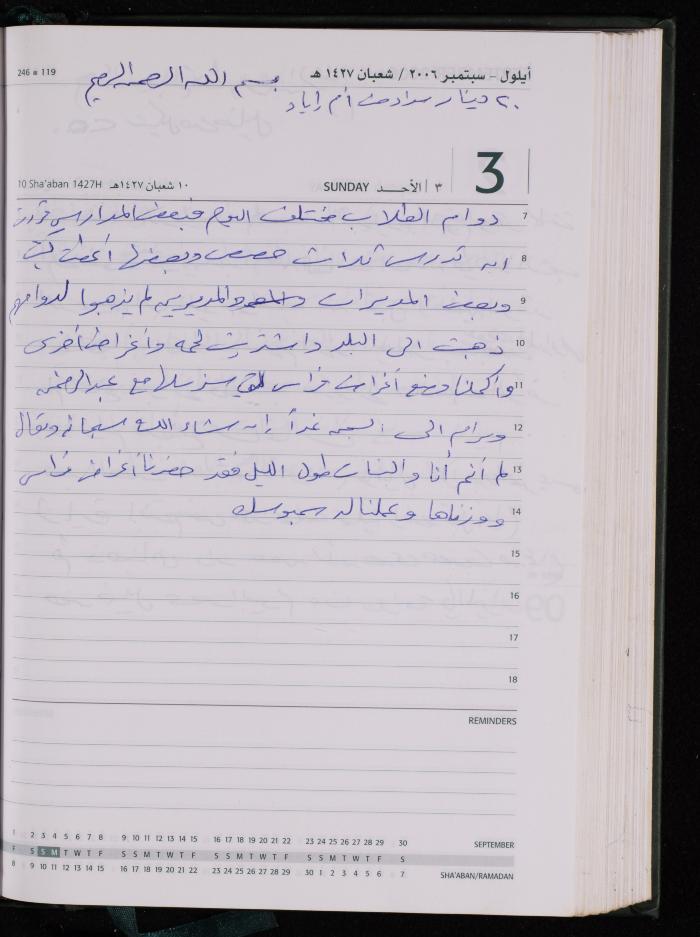 246 ■ 119
أيلول - سبتمبر ٢٠٠٦ / شعبان ١٤٢٧ هـ
بسم الله الرحمن الرحيم
٢٠ دينار سداد من أم إياد
3
10 Sha'aban 1427H ١٠ شعبان ١٤٢٧هـ
SUNDAY ٣ | الأحــد
7 دوام الطلاب مختلف اليوم فبعض المدارس قررت
8 ان تدرس ثلاث حصص وبعضها أعطت كتب
9 وبعض المديرات والمديرين لم يذهبوا لدوامهم
10 ذهبت الى البلد واشتريت لحمه وأغراض أخرى
11 وأكملنا وضع أغراض فراس التي سنرسلها مع عبد الرحمن
12 ومرام الى اليمن غداً إن شاء الله سبحانه وتعالى
13 لم أنم أنا والبنات طول الليل فقد حضرنا أغراض فراس
14 ووزناها وعملنا له سمبوسك
15
16
17
18
REMINDERS
1 2 3 4 5 6 7 8 9 10 11 12 13 14 15 16 17 18 19 20 21 22 23 24 25 26 27 28 29 30 SEPTEMBER
F S S M T W T F S S M T W T F S S M T W T F S S M T W T F S
8 9 10 11 12 13 14 15 16 17 18 19 20 21 22 23 24 25 26 27 28 29 30 1 2 3 4 5 6 7 SHA'ABAN/RAMADAN